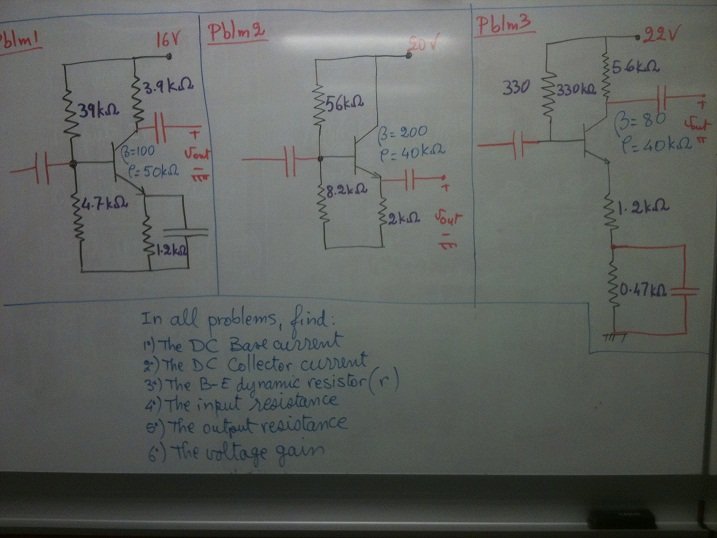 Pblm1
16V
3.9kΩ
39kΩ
β=100
ρ=50kΩ
+
vout
-
4.7kΩ
1.2kΩ
Pblm2
20V
56kΩ
β=200
ρ=40kΩ
+
vout
-
8.2kΩ
2kΩ
Pblm3
22V
5.6kΩ
330
330kΩ
β=80
ρ=40kΩ
+
vout
1.2kΩ
0.47kΩ
In all problems, find:
1°) The DC Base current
2°) The DC Collector current
3°) The B-E dynamic resistor (r)
4°) The input resistance
5°) The output resistance
6°) The voltage gain